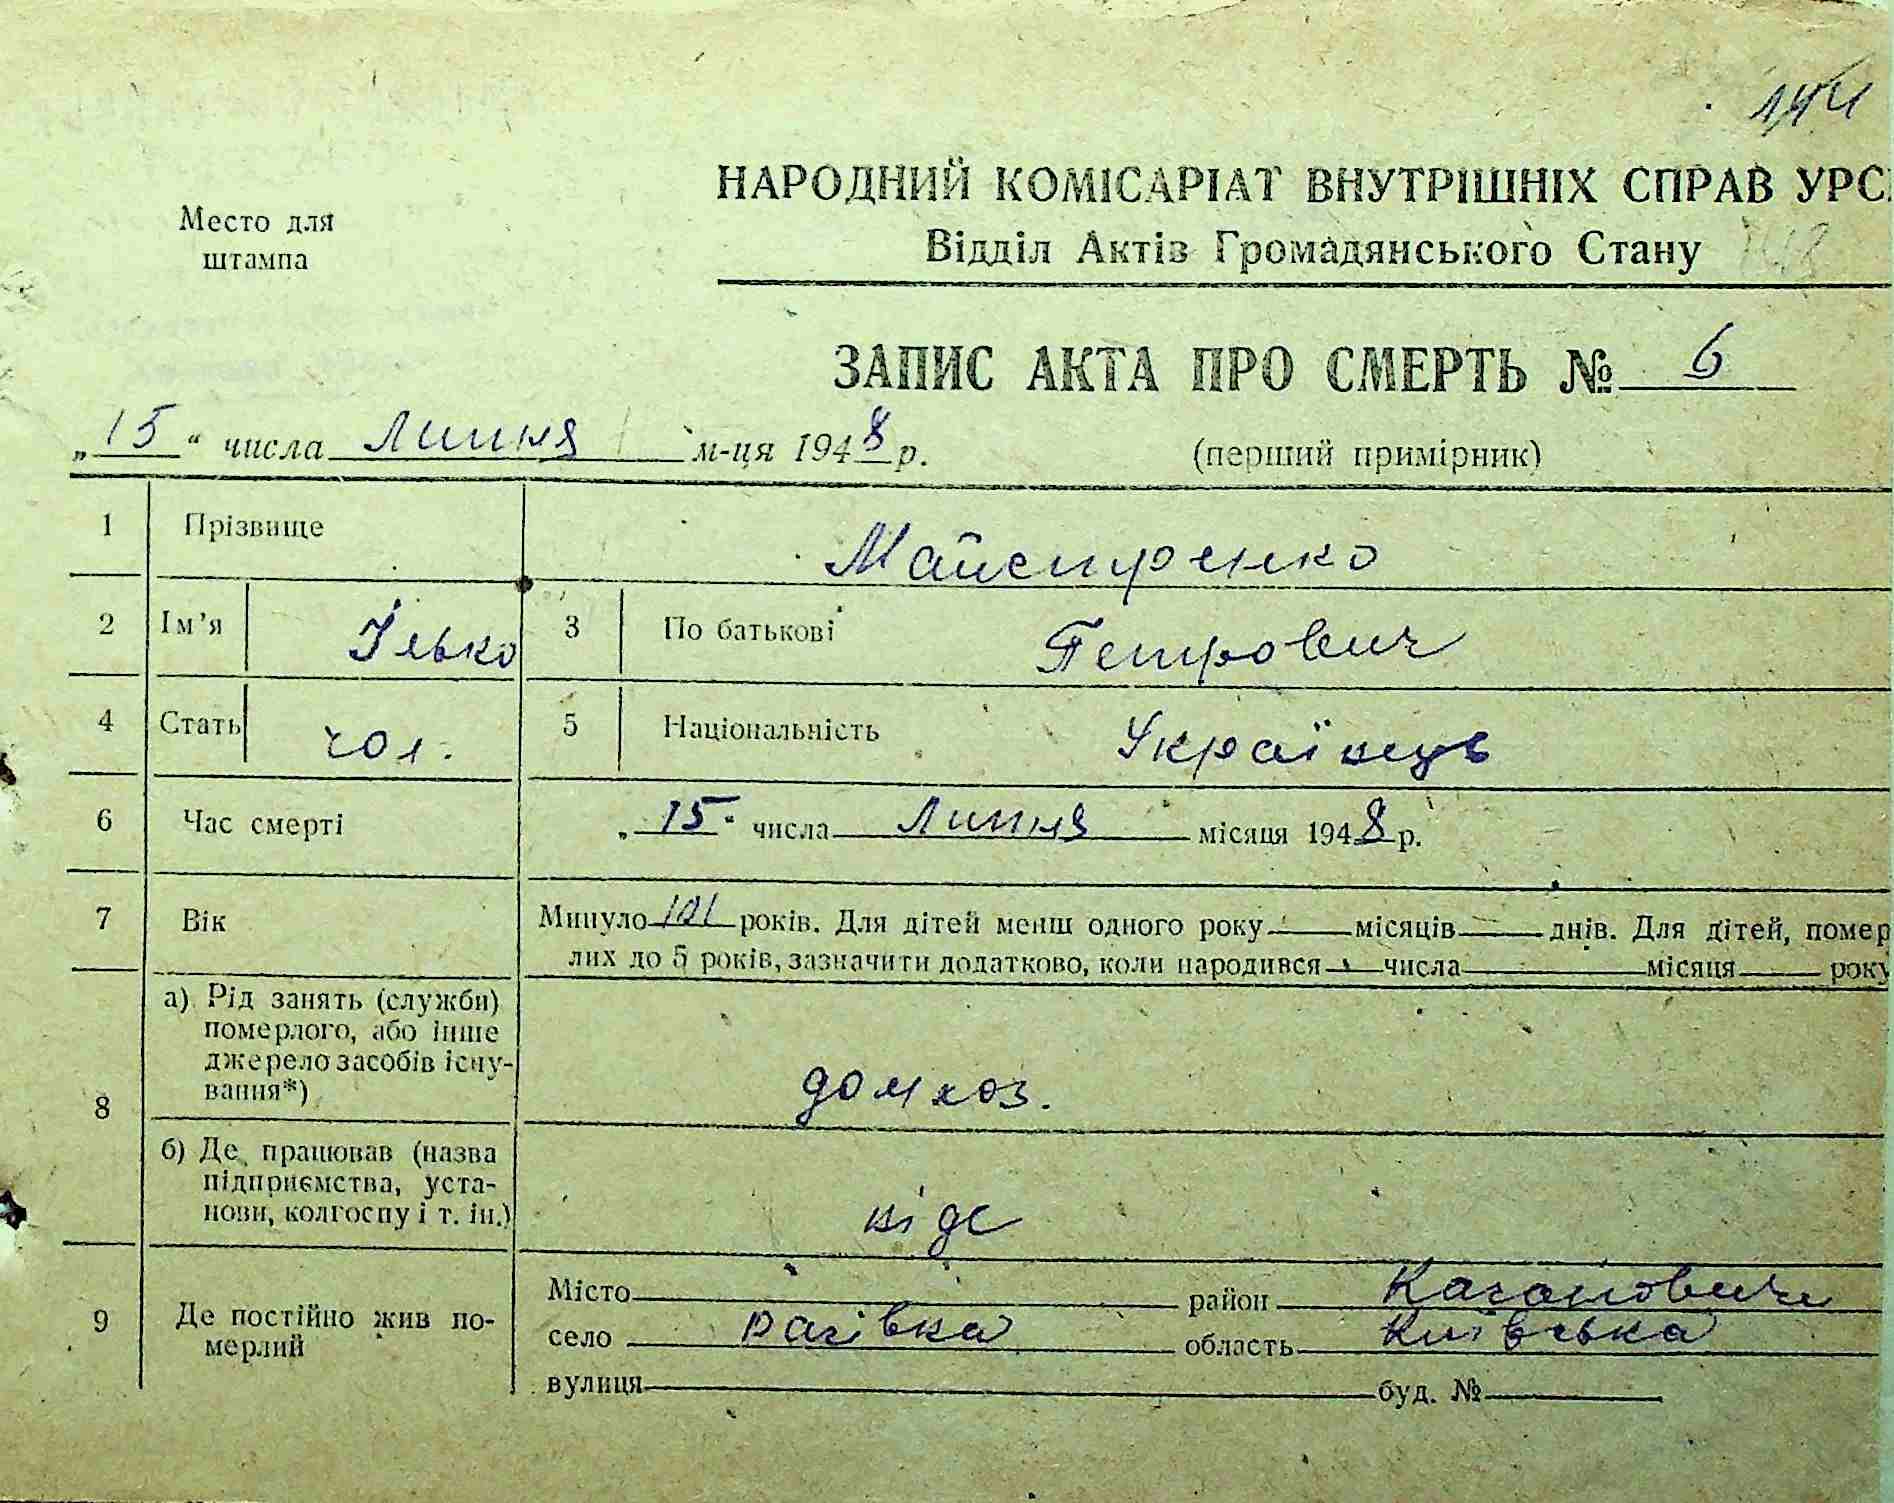 144
НАРОДНИЙ КОМІСАРІАТ ВНУТРІШНІХ СПРАВ УРС
Відділ Актів Громадянського Стану
Место для
штампа
ЗАПИС АКТА ПРО СМЕРТЬ № 6
„15“ числа Липня м-ця 1948 р.
(перший примірник)
1 Прізвище Майстренко
2 Ім’я Ілько 3 По батькові Петрович
4 Стать чол. 5 Національність Українець
6 Час смерті „15“ числа Липня місяця 1948 р.
7 Вік Минуло 101 років. Для дітей менш одного року — місяців — днів. Для дітей, помер
лих до 5 років, зазначити додатково, коли народився числа місяця року
8 а) Рід занять (служби)
померлого, або інше
джерело засобів існу-
вання*) домхоз.
б) Де працював (назва
підприємства, уста-
нови, колгоспу і т. ін.) ніде
9 Де постійно жив по-
мерлий
Місто район Кагановичи
село Рагівка область Київська
вулиця буд. №